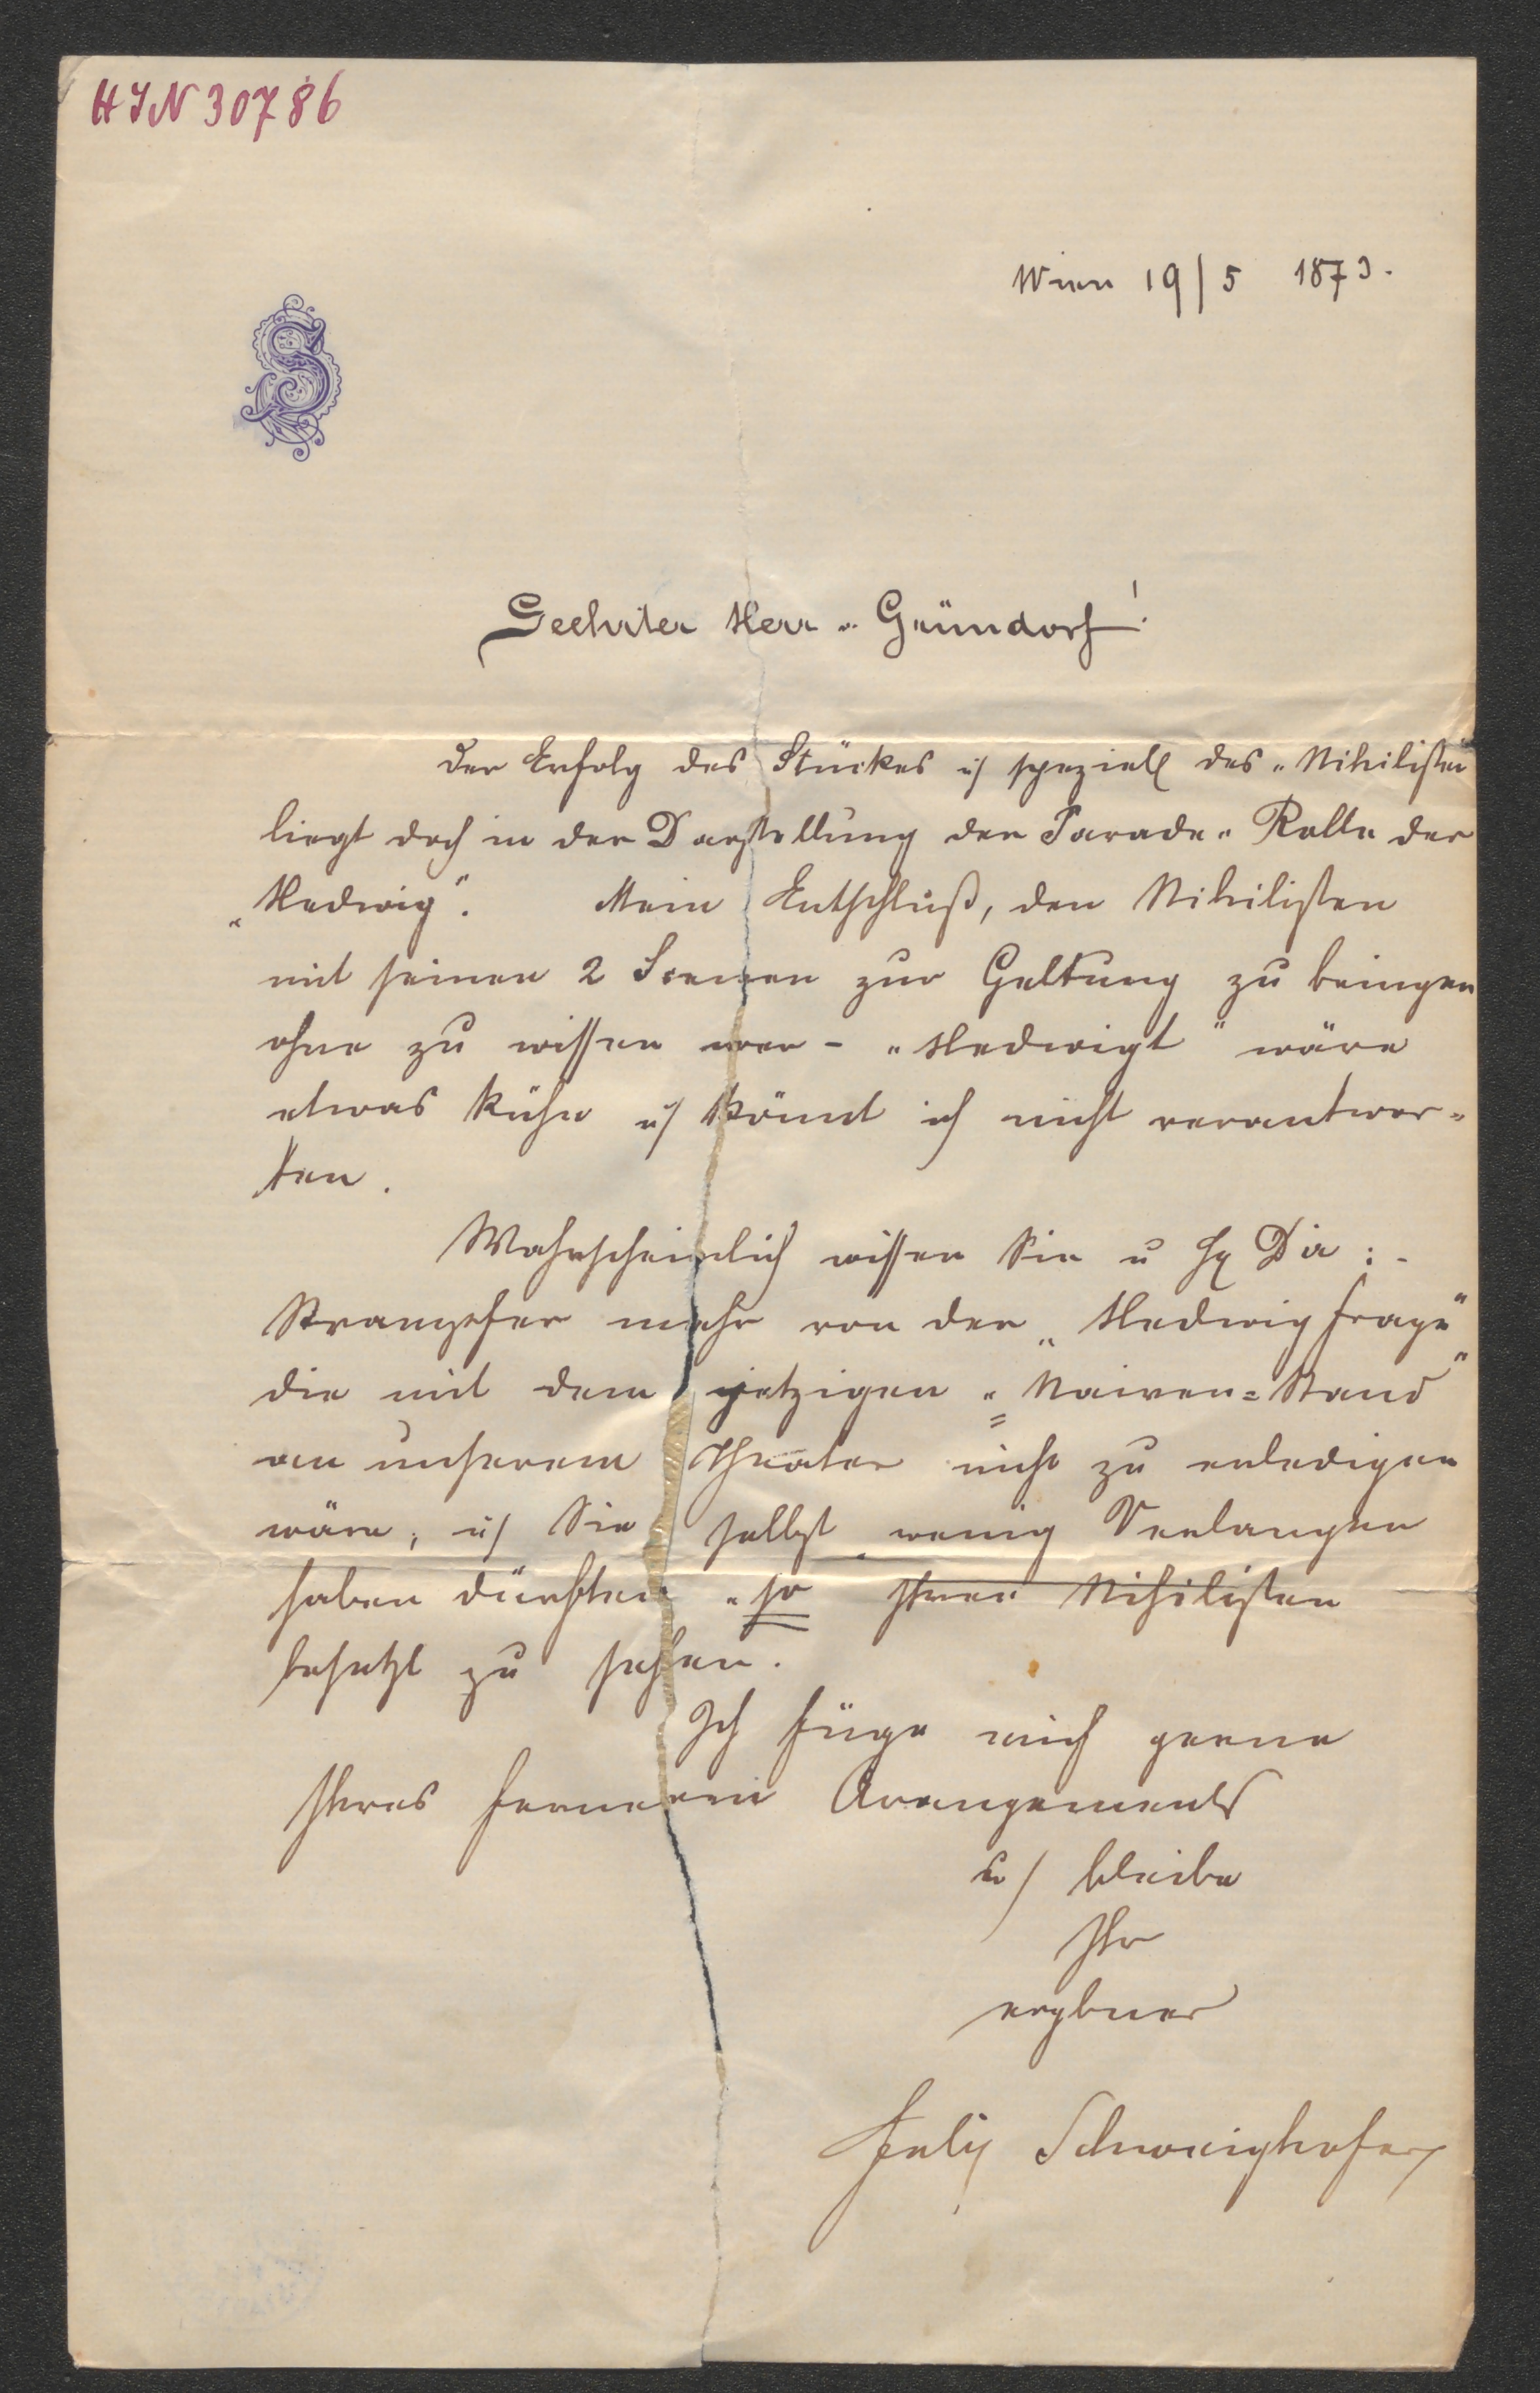 HIN 30786
Wien 19/5 1873.
S
Geehrter Herr v. Gründorf!
Der Erfolg des Stückes u/ speziell des „Nihilisten
liegt doch in der Darstellung der Parade-Rolle der
„Hedwig“. Mein Entschluß, den Nihilisten
mit seinen 2 Scenen zur Geltung zu bringen
ohne zu wissen wer – „Hedwigt“ wäre
etwas kühn u/ könnt ich nicht verantwor-
ten.
Wahrscheinlich wissen Sie u Hr Dir:
Strampfer mehr von der „Hedwig frage“
die mit dem jetzigen „Naiven=Stand“
an unserem Theater nicht zu erledigen
wäre, u/ Sie selbst wenig Verlangen
haben dürften so Ihren Nihilisten
besetzt zu sehen.
Ich füge mich gerne
Ihres ferneren Arangements
u/ bleibe
Ihr
ergbner
Felix Schweighofer